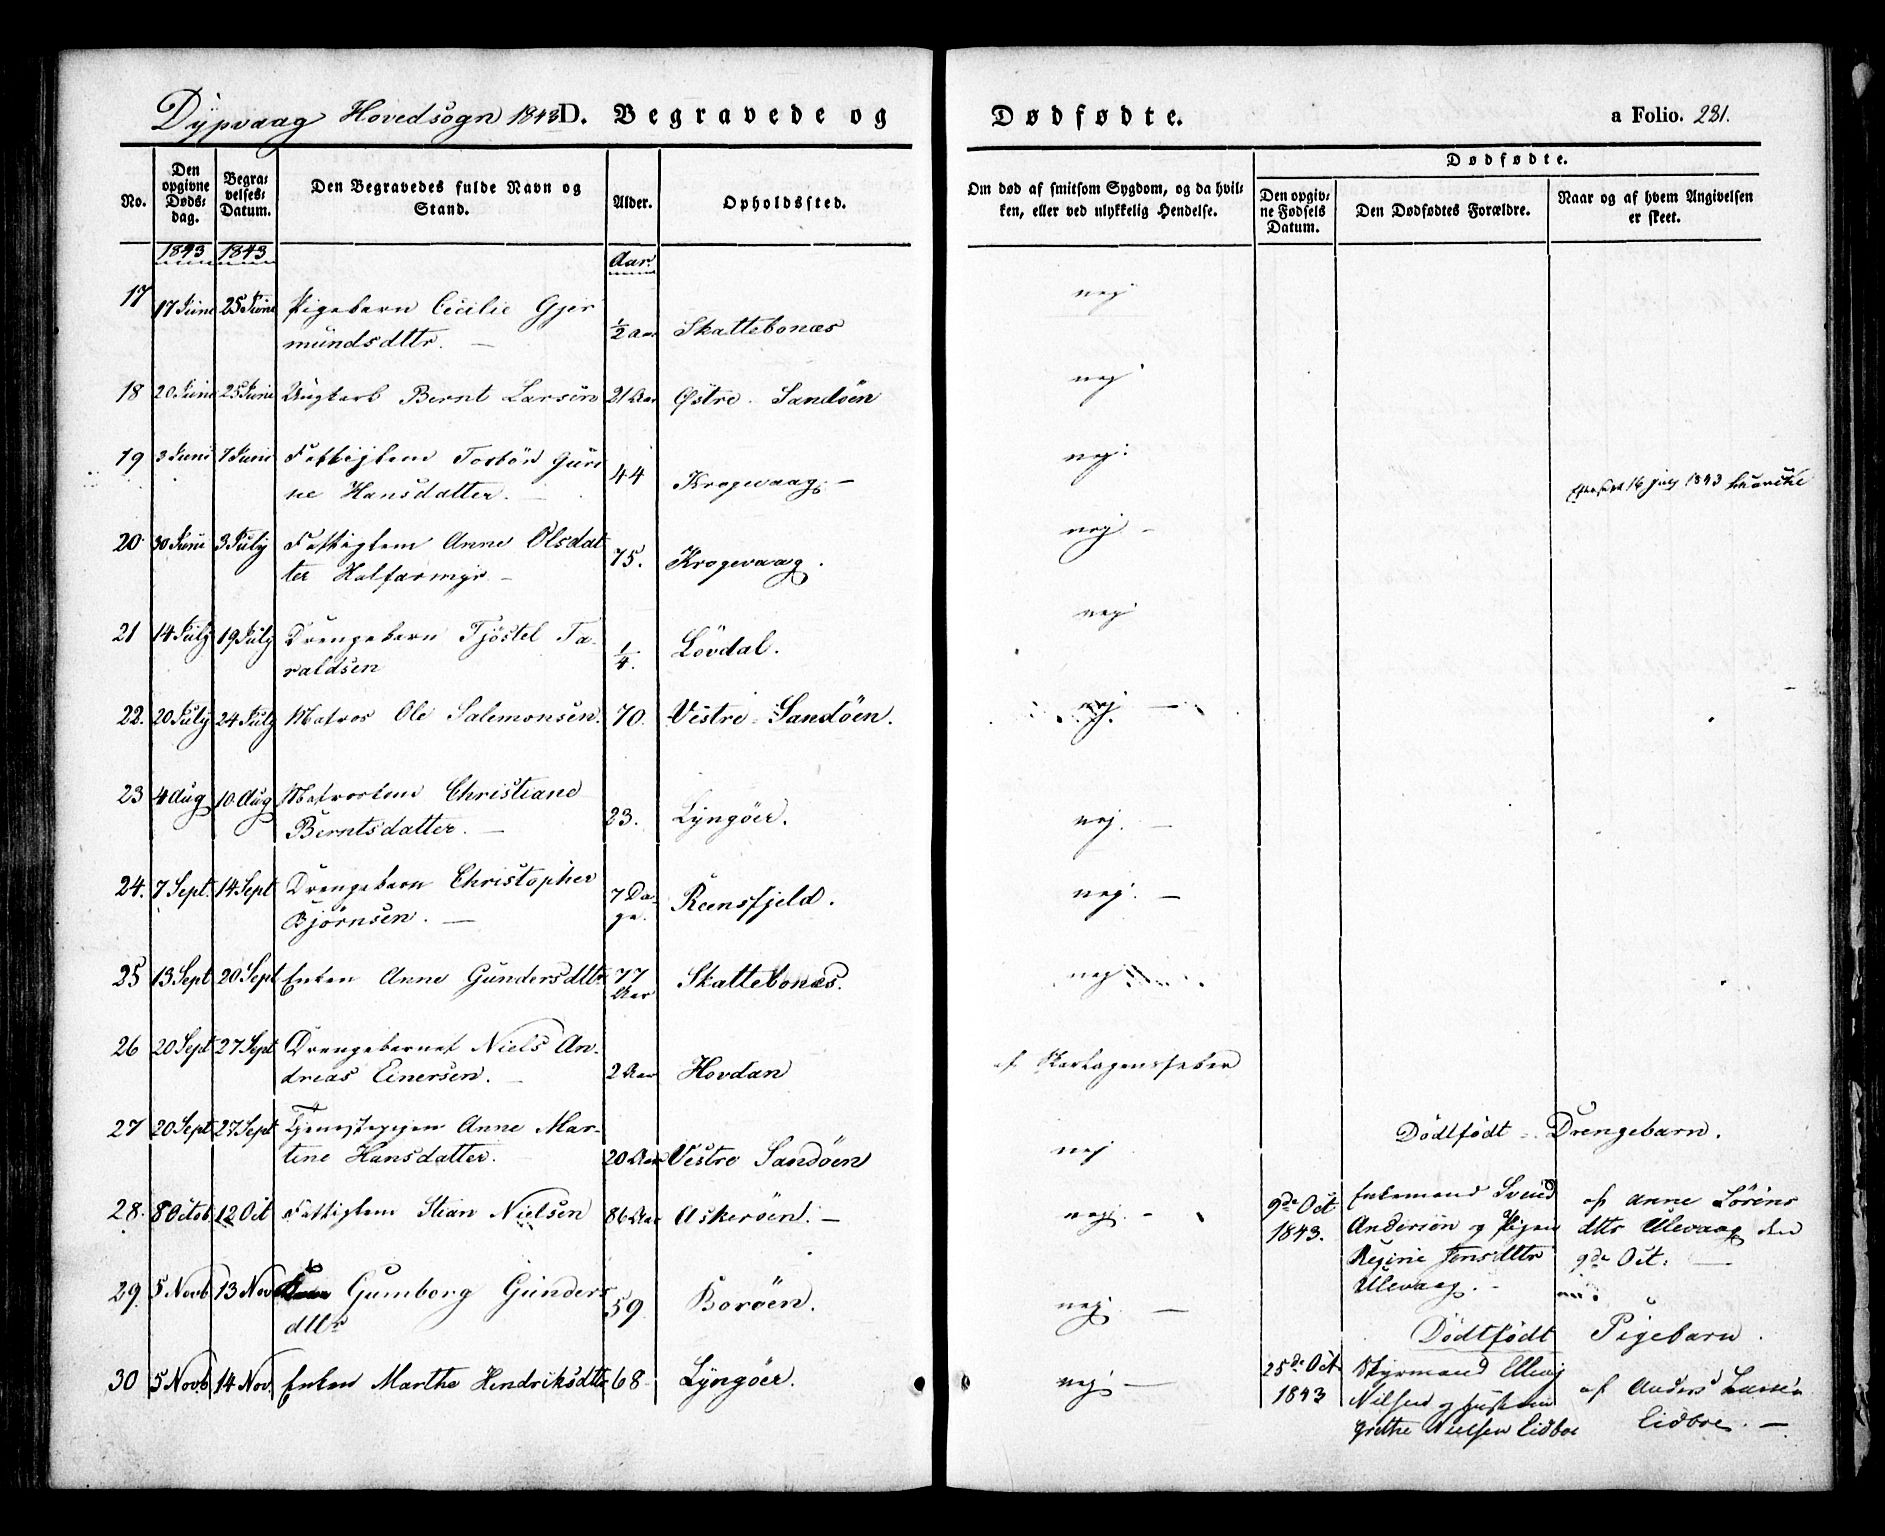 Dypvaag Hovedsogn 1843 D. Begravede og Dødfødte. a Folio. 231.
No.
Den opgivne Døds-dag.
Begra-velses-Datum.
Den Begravedes fulde Navn og Stand.
Alder.
Opholdssted.
Om død af smitsom Sygdom, og da hvil-
ken, eller ved ulykkelig Hendelse.
Dødfødte.
Den opgiv-ne Fødsels Datum.
Den Dødfødtes Forældre.
Naar og af hvem Angivelsen
er skeet.
1843 1843 Aar.
17 17 Juni 25 Juni Pigebarn Cecilie Gjer
mundsdttr. — 1/2 Aar Skattebonæs nej
18 20 Juni 25 Juni Ungkarl Bernt Larsen 21 Aar Østre Sandöen nej
19 3 Juni 7 Juni Fattiglem Torbör Guri
ne Hansdatter. — 44 Krogevaag. — nej.
16 July 1843
20 30 Juni 3 July Fattiglem Anne Olsdat
ter Holfarmyr — 75. Krogevaag. nej —
21 14 July 19 July Drengebarn Tjöstel Ta-
raldsen 1/4. Lövdal. nej
22. 20 July 24 July Matros Ole Salemonsen. 70. Vestre Sandöen. nej —
23 4 Aug 10 Aug Matroskone Christiane
Berntsdatter. — 23. Lyngöer. nej. —
24. 7 Sept. 14 Sept Drengebarn Christopher
Bjørnsen. — 7 Da-
ge. Reensfjeld. nej. —
25 13 Sept 20 Sept Enken Anne Gundersdttr 77
Aar Skattebonæs. nej
26 20 Sept 27 Sept Drengebarnet Niels An-
dreas Einersen. — 2 Aar Hovdan af Skarlagensfeber
27 20 Sept 27 Sept Tjenestepigen Anne Mar-
tine Hansdatter. — 20 Aar Vestre Sandöen nej
Dödfödt Drengebarn.
28. 8 Octob 12 Oct Fattiglem Stian Nielsen 86 Aar Askeröen. — nej. —
9de Oct
1843.
Enkemand Svend
Andersön og Pigen
Regine Jensdttr
Ulevaag. —
af Anne Sörens
dttr Ulevaag den
9de Oct. —
29. 5 Novb 13 Nov Gumborg Gunders
dttr 59 Boröen. nej. —
Dödfödt Pigebarn.
30 5 Novb. 14 Nov. Enken Marthe Hendriksdttr 68 Lyngöer. nej —
25de Oct
1843
Styrmand Ellevi
Nilsen og Hustrue
Grethe Nielsen Eidboe
af Anders Larsen
Eidboe. —